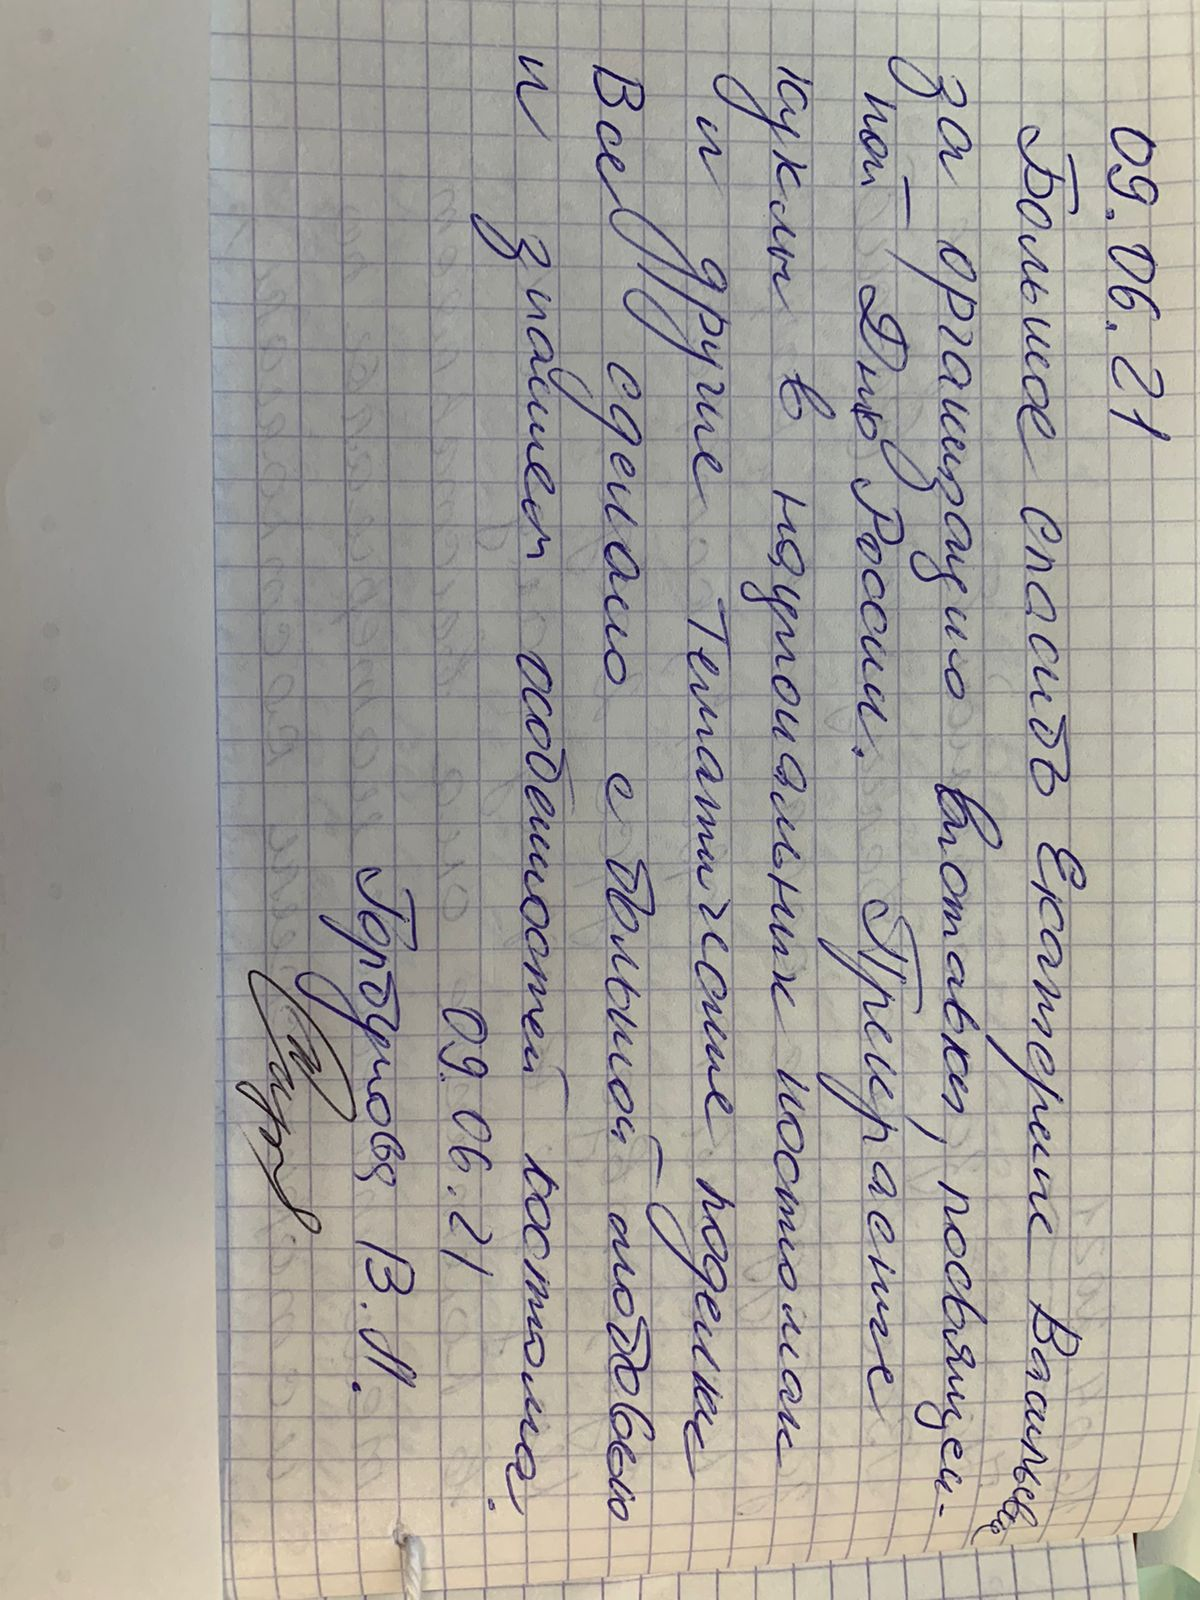 09.06.21
Большое спасибо Екатерине Васильевне
за организацию выставки, посвящен-
ной Дню России. Прекрасные
куклы в национальных костюмах
и другие тематические поделки
Все сделано с большой любовью
и знанием особенностей костюма.
09.06.21
Горбунова В.И.